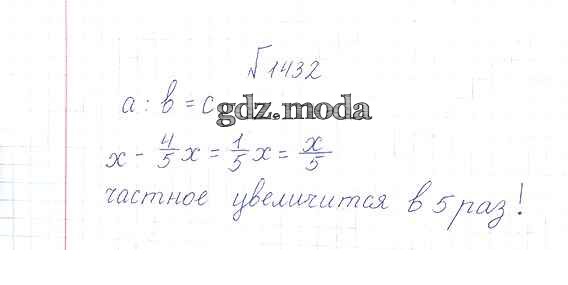 №1432
a : b = c gdz.moda
x - 4/5 x = 1/5 x = x/5
частное увеличится в 5 раз!